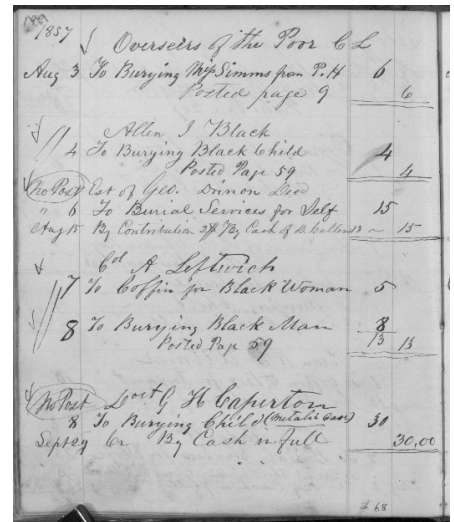 1857
Overseirs of the Poor C L
Aug 3 To Burying Miss Simms from P.H 6
Posted page 9 6
Allen J Black
" 4 To Burying Black Child 4
Posted Page 59 4
No Post Est of Geo. Drinon Decd
" 6 To Burial Services for Self 15
Aug 15 By Contribution By Cash of 15
Col A Leftwich
" 7 To Coffin for Black Woman 5
" 8 To Burying Black Man 8
Posted Page 59 13 13
No Post G H Caperton
8 To Burying Child (Metalic Case) 30
Sept 29 Cr By Cash in full 30,00
$ 68